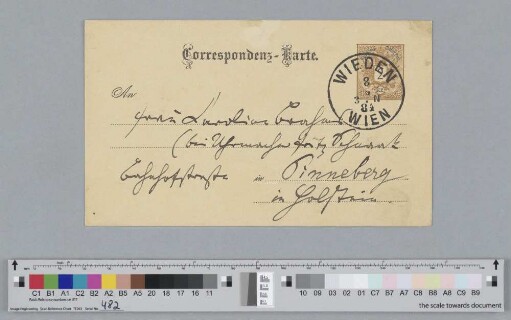 Correspondenz-Karte.
WIEDEN
8
3
N
84
WIEN
An
Frau Karoline Brahms
(bei Uhrmacher Fritz Schnack
Bahnhofstraße in Pinneberg
in Holstein.
C1 B1 A1 C2 B2 A2 B5 A5 20 18 17 16 11
10 09 03 02 01 C7 B7 A7 C8 B8 A8 C9 B9
482
the scale towards document